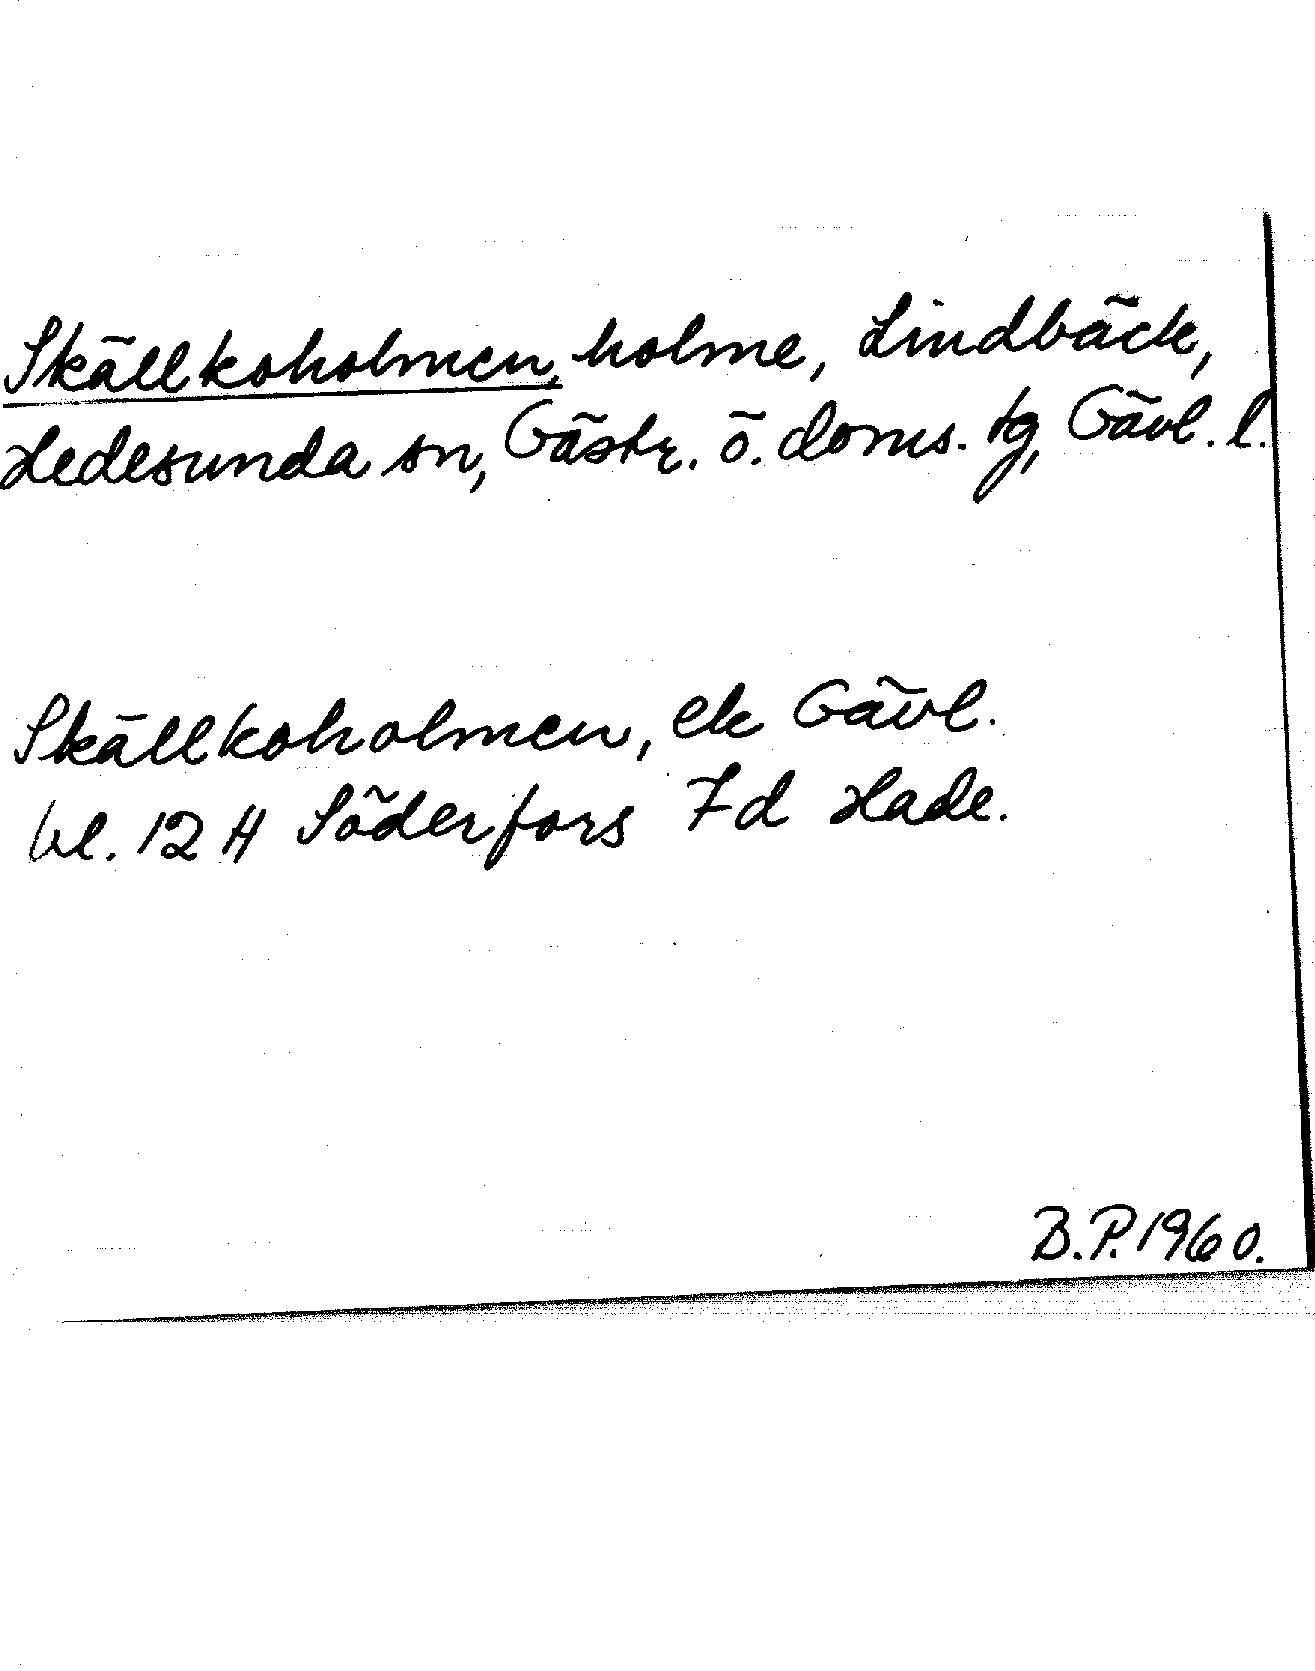 Skällkoholmen, holme, Lindbäck,
Hedesunda sn, Gästr. ö. doms. tg, Gävl. l.
Skällkoholmen, ek Gävl.
bl. 12 H Söderfors 7d Hade.
B.P. 1960.